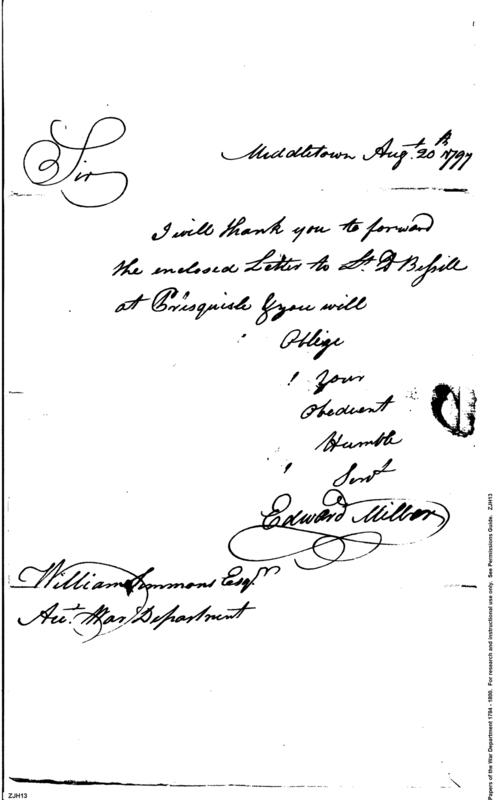 Middletown Augt. 20th 1797
Sir
I will thank you to forward
the enclosed Letter to Lt. D Bissill
at Presquisle & you will
Oblige
Your
Obedient
Humble
Servt
Edward Miller
William Simmons Esqr
Acct. War Department
ZJH13
Papers of the War Department 1784 - 1800. For research and instructional use only. See Permissions Guide. ZJH13